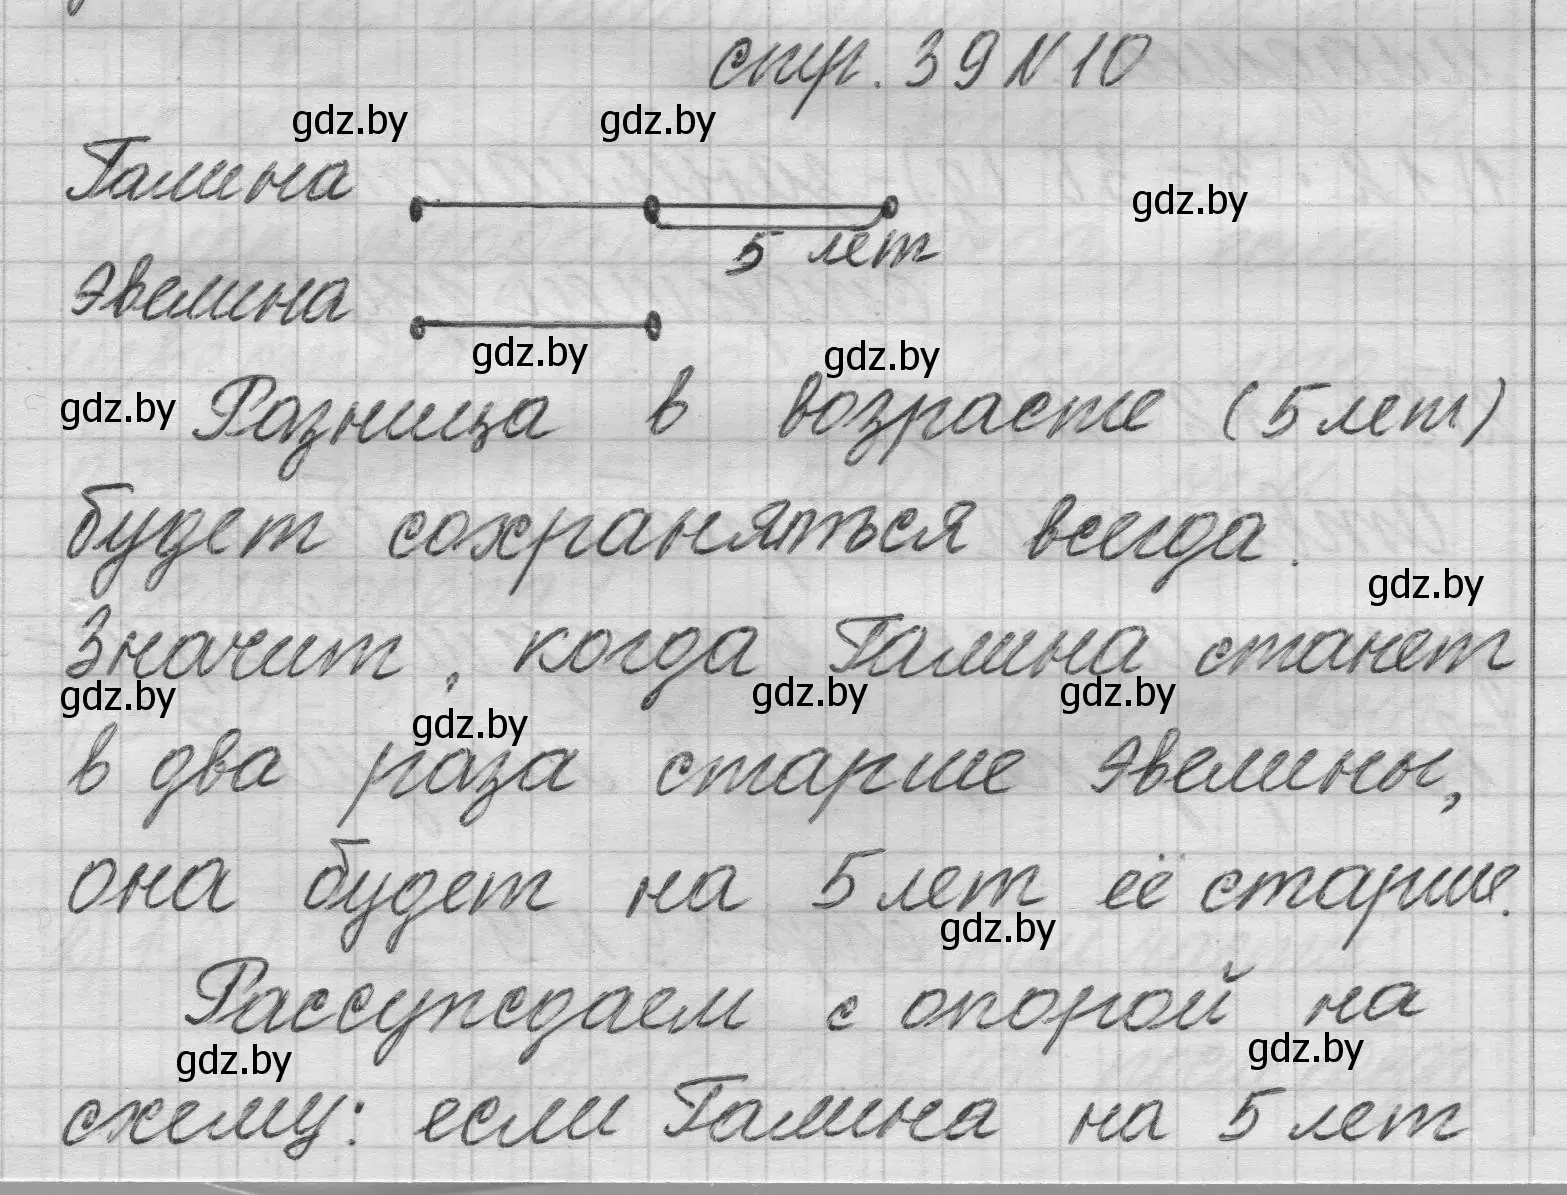 стр. 39 N 10
gdz.by gdz.by
Галина
gdz.by
5 лет
Эвелина
gdz.by gdz.by
gdz.by
Разница в возрасте (5 лет)
будет сохраняться всегда.
gdz.by
Значит, когда Галина станет
gdz.by gdz.by gdz.by gdz.by
в два раза старше Эвелины,
она будет на 5 лет её старше.
gdz.by
Рассуждаем с опорой на
gdz.by gdz.by
схему: если Галина на 5 лет